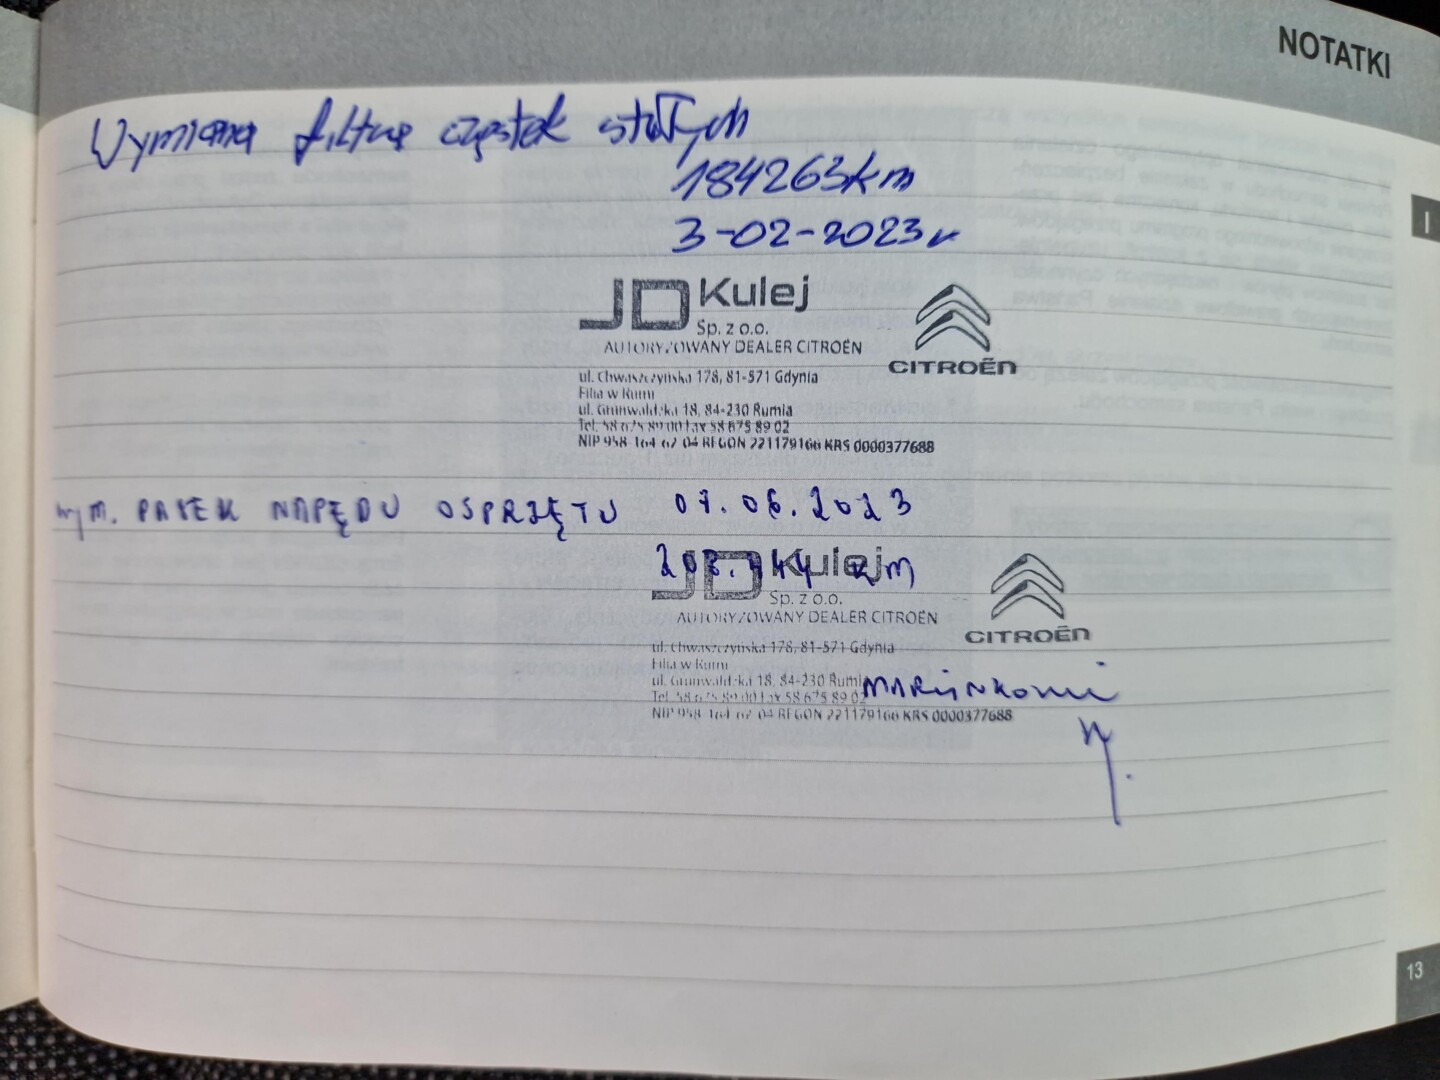 NOTATKI
Wymiana filtra cząstek stałych
184263km
3-02-2023r
I
JD Kulej
Sp. z o.o.
AUTORYZOWANY DEALER CITROËN
CITROËN
ul. Chwaszczyńska 178, 81-571 Gdynia
Filia w Rumi
ul. Grunwaldzka 18, 84-230 Rumia
Tel. 58 675 89 00 Fax 58 675 89 02
NIP 958-164-62-04 REGON 221179166 KRS 0000377688
wym. PASEK NAPĘDU OSPRZĘTU 07.06.2023
km
JD Kulej
Sp. z o.o.
AUTORYZOWANY DEALER CITROËN
CITROËN
ul. Chwaszczyńska 178, 81-571 Gdynia
Filia w Rumi
ul. Grunwaldzka 18, 84-230 Rumia
Tel. 58 675 89 00 Fax 58 675 89 02
NIP 958-164-62-04 REGON 221179166 KRS 0000377688
13